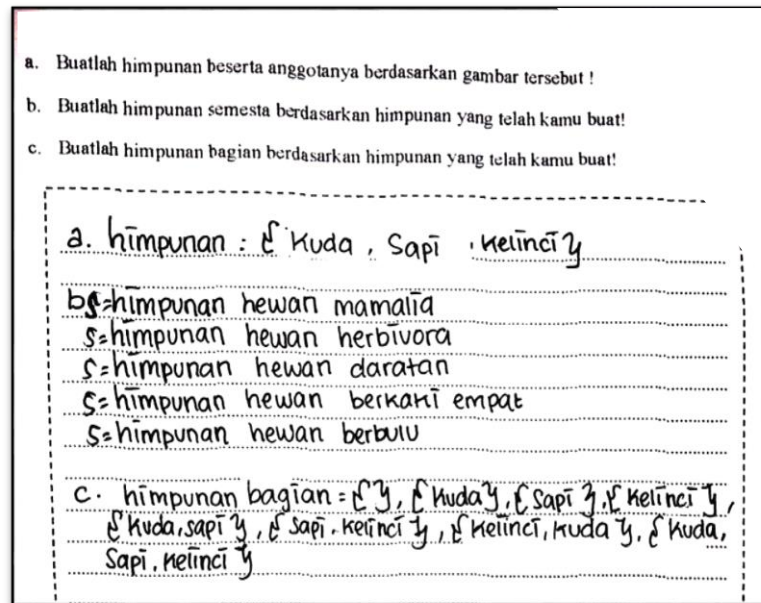 a. Buatlah himpunan beserta anggotanya berdasarkan gambar tersebut !
b. Buatlah himpunan semesta berdasarkan himpunan yang telah kamu buat!
c. Buatlah himpunan bagian berdasarkan himpunan yang telah kamu buat!
a. himpunan : { Kuda , Sapi , Kelinci }
b. S = himpunan hewan mamalia
S = himpunan hewan herbivora
S = himpunan hewan daratan
S = himpunan hewan berkaki empat
S = himpunan hewan berbulu
c. himpunan bagian = { }, { Kuda }, { Sapi }, { Kelinci },
{ Kuda, sapi }, { sapi, Kelinci }, { Kelinci, Kuda }, { Kuda,
Sapi, Kelinci }